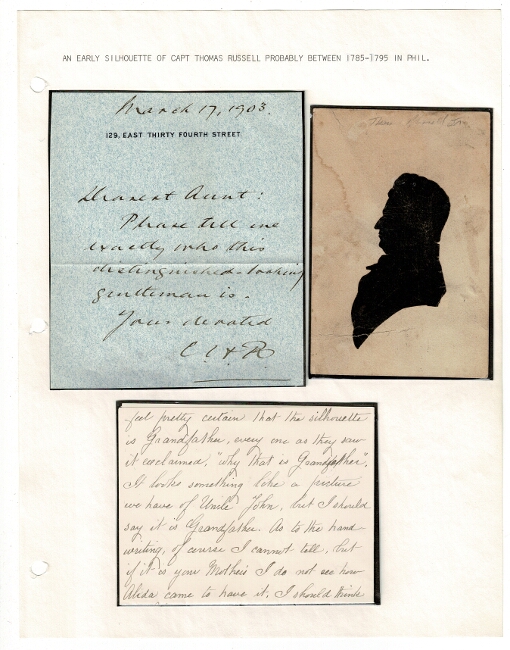 AN EARLY SILHOUETTE OF CAPT THOMAS RUSSELL PROBABLY BETWEEN 1785-1795 IN PHIL.
March 17, 1903.
129, EAST THIRTY FOURTH STREET
Dearest Aunt:
Please tell me
exactly who this
distinguished-looking
gentleman is.
Yours devoted
feel pretty certain that the silhouette
is Grandfather, every one as they saw
it exclaimed, "why that is Grandfather".
It looks something like a picture
we have of Uncle John, but I should
say it is Grandfather. As to the hand-
writing, of course I cannot tell, but
if it is your Mother's I do not see how
Alida came to have it, I should think